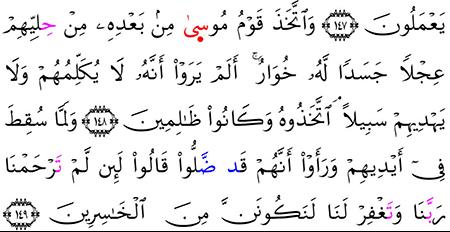 يَعْمَلُونَ ۝١٤٧ وَٱتَّخَذَ قَوْمُ مُوسَىٰ مِنۢ بَعْدِهِۦ مِنْ حِلِيِّهِمْ
عِجْلًا جَسَدًا لَّهُۥ خُوَارٌ ۚ أَلَمْ يَرَوْا۟ أَنَّهُۥ لَا يُكَلِّمُهُمْ وَلَا
يَهْدِيهِمْ سَبِيلًا ۘ ٱتَّخَذُوهُ وَكَانُوا۟ ظَـٰلِمِينَ ۝١٤٨ وَلَمَّا سُقِطَ
فِىٓ أَيْدِيهِمْ وَرَأَوْا۟ أَنَّهُمْ قَد ضَّلُّوا۟ قَالُوا۟ لَئِن لَّمْ تَرْحَمْنَا
رَبَّنَا وَتَغْفِرْ لَنَا لَنَكُونَنَّ مِنَ ٱلْخَـٰسِرِينَ ۝١٤٩